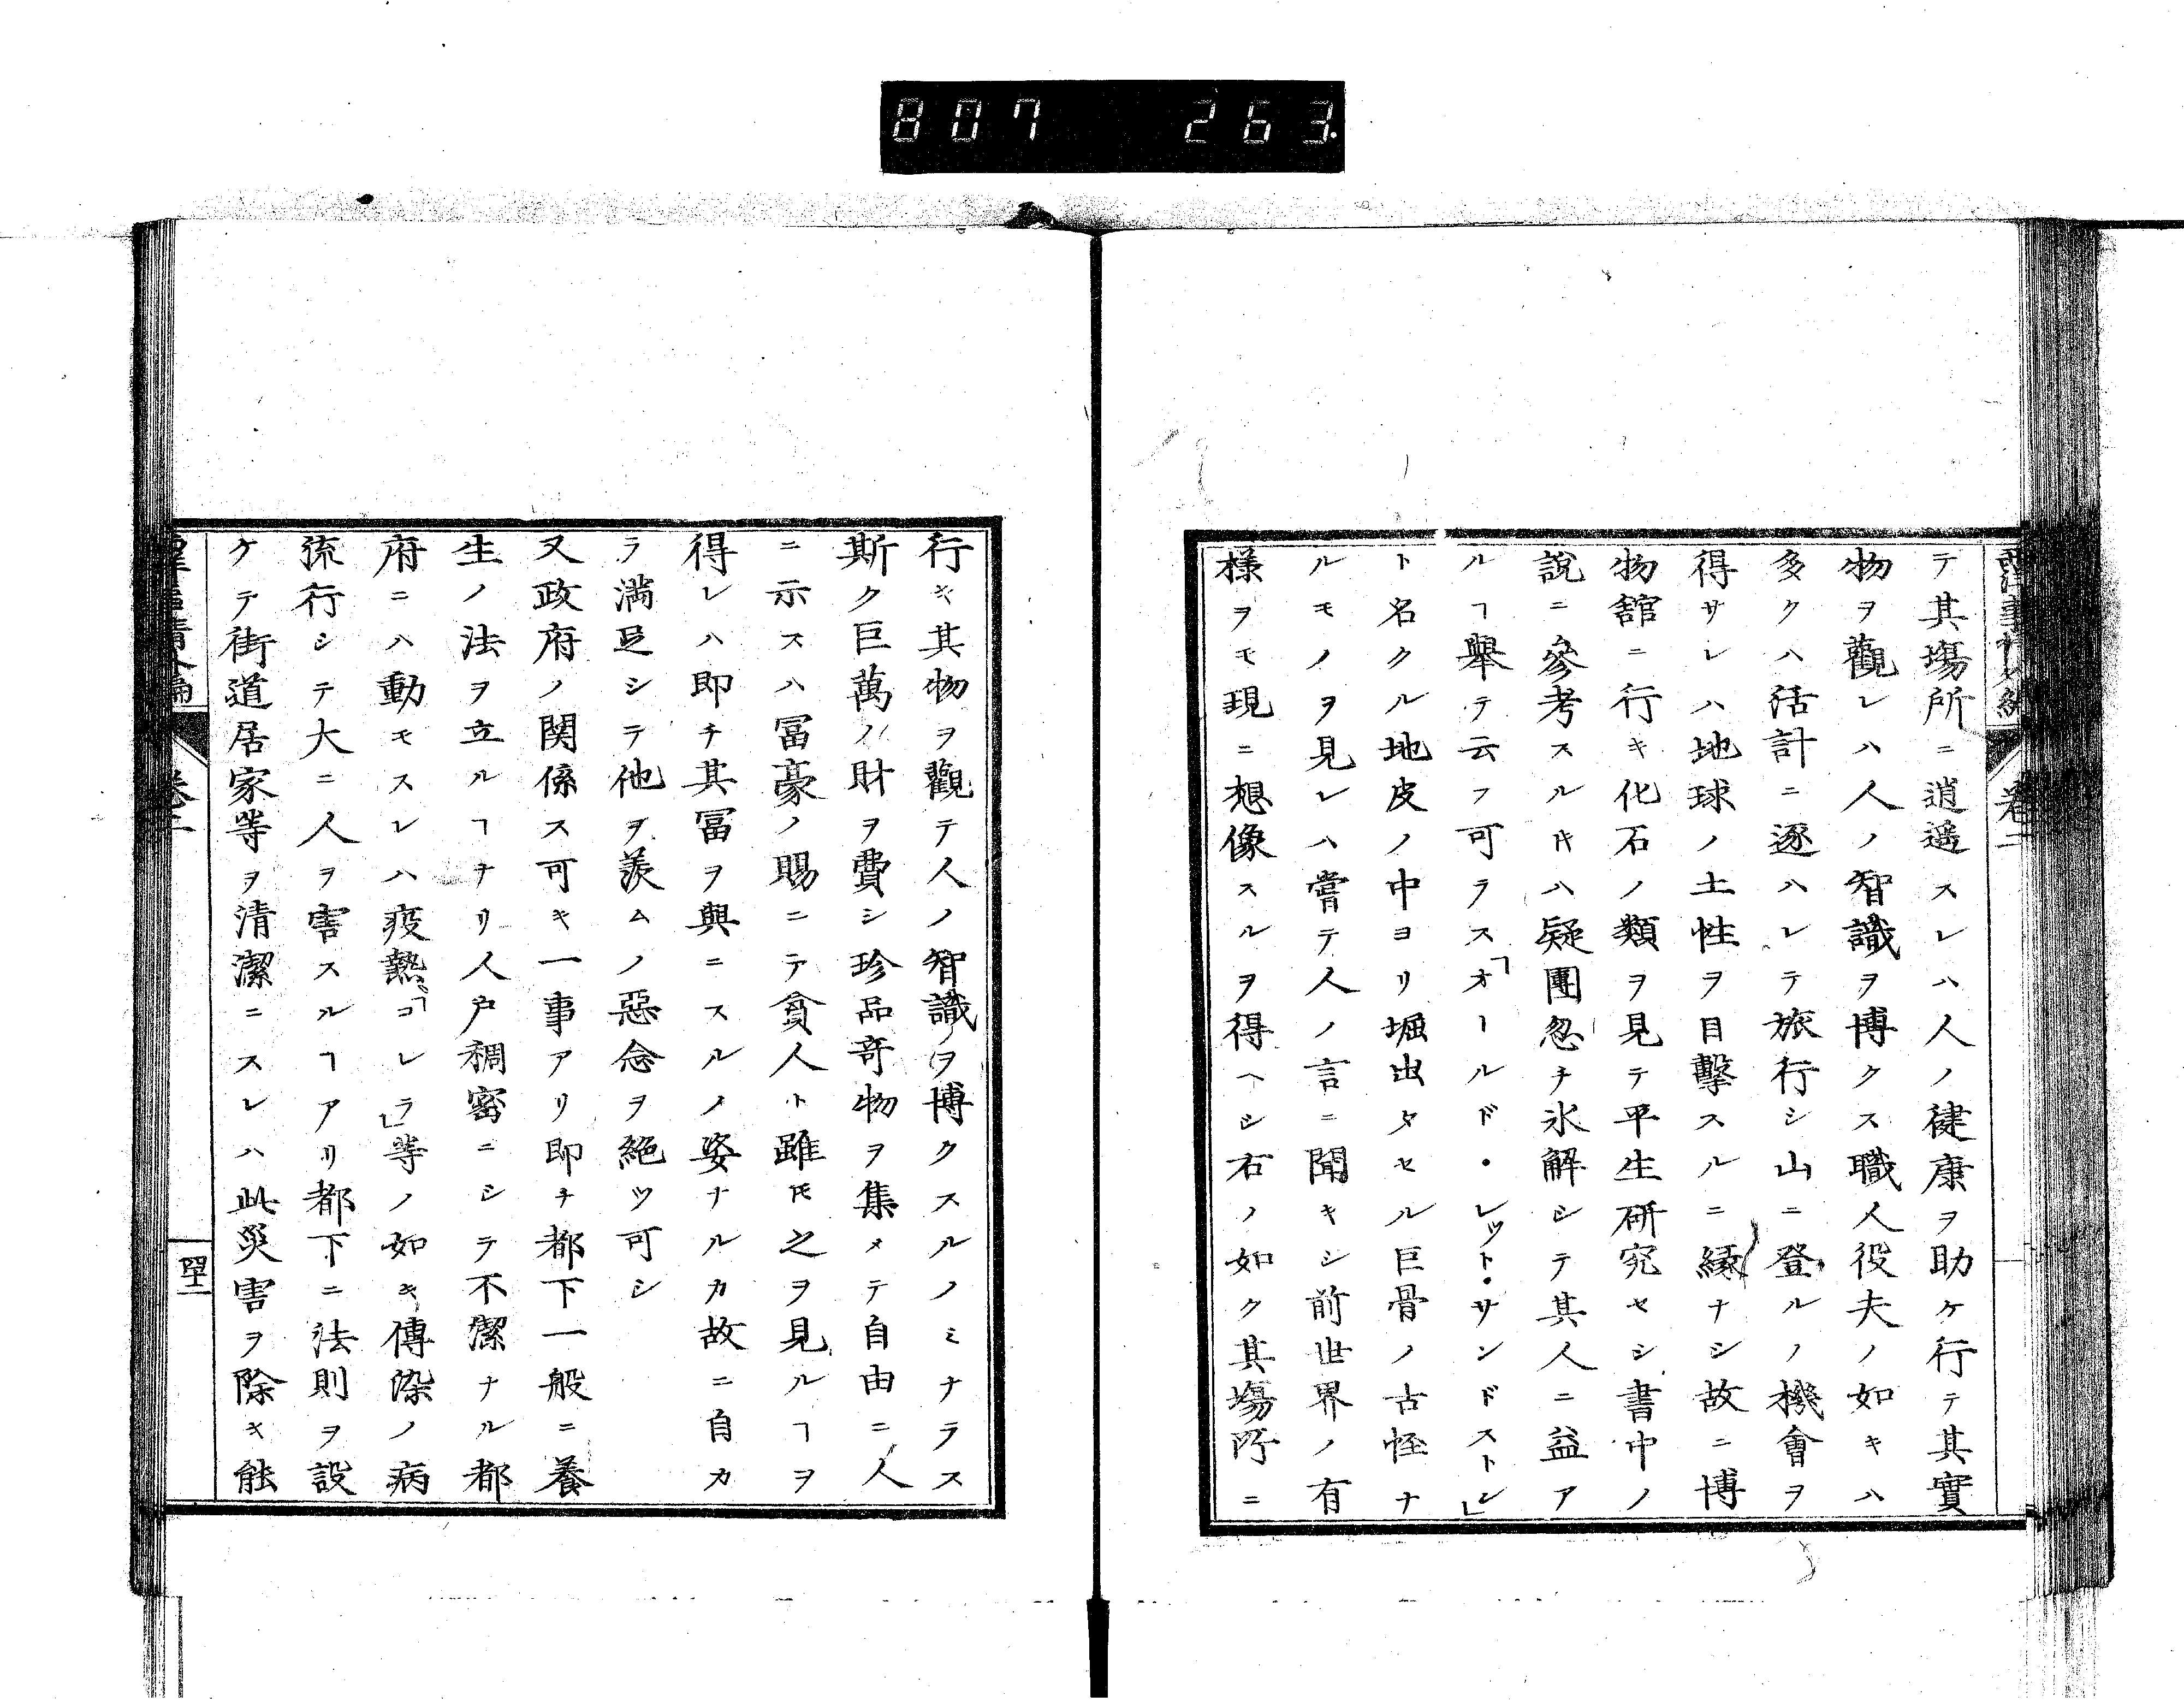 807 263
テ其塲所ニ逍遥スレハ人ノ健康ヲ助ケ行テ其實
物ヲ觀レハ人ノ智識ヲ博クス職人役夫ノ如キハ
多クハ活計ニ逐ハレテ旅行シ山ニ登ルノ機會ヲ
得サレハ地球ノ土性ヲ目擊スルニ縁ナシ故ニ博
物舘ニ行キ化石ノ類ヲ見テ平生研究セシ書中ノ
說ニ參考スルキハ疑團忽チ氷解シテ其人ニ益ア
ルヿ舉テ云フ可ラス「オールド・レット・サンドストン」
ト名クル地皮ノ中ヨリ堀出タセル巨骨ノ古怪ナ
ルモノヲ見レハ嘗テ人ノ言ニ聞キシ前世界ノ有
様ヲモ現ニ想像スルヲ得ヘシ右ノ如ク其塲所ニ
行キ其物ヲ觀テ人ノ智識ヲ博クスルノミナラス
斯ク巨萬ノ財ヲ費シ珍品奇物ヲ集メテ自由ニ人
ニ示スハ冨豪ノ賜ニテ貧人ト雖𪜈之ヲ見ルヿヲ
得レハ即チ其冨ヲ與ニスルノ姿ナルカ故ニ自カ
ラ滿足シテ他ヲ羨ムノ惡念ヲ絕ツ可シ
又政府ノ関係ス可キ一事アリ即チ都下一般ニ養
生ノ法ヲ立ルヿナリ人戸稠密ニシテ不潔ナル都
府ニハ動モスレハ疫熱「コレラ」等ノ如キ傳染ノ病
流行シテ大ニ人ヲ害スルヿアリ都下ニ法則ヲ設
ケテ街道居家等ヲ清潔ニスレハ此災害ヲ除キ能
卷二